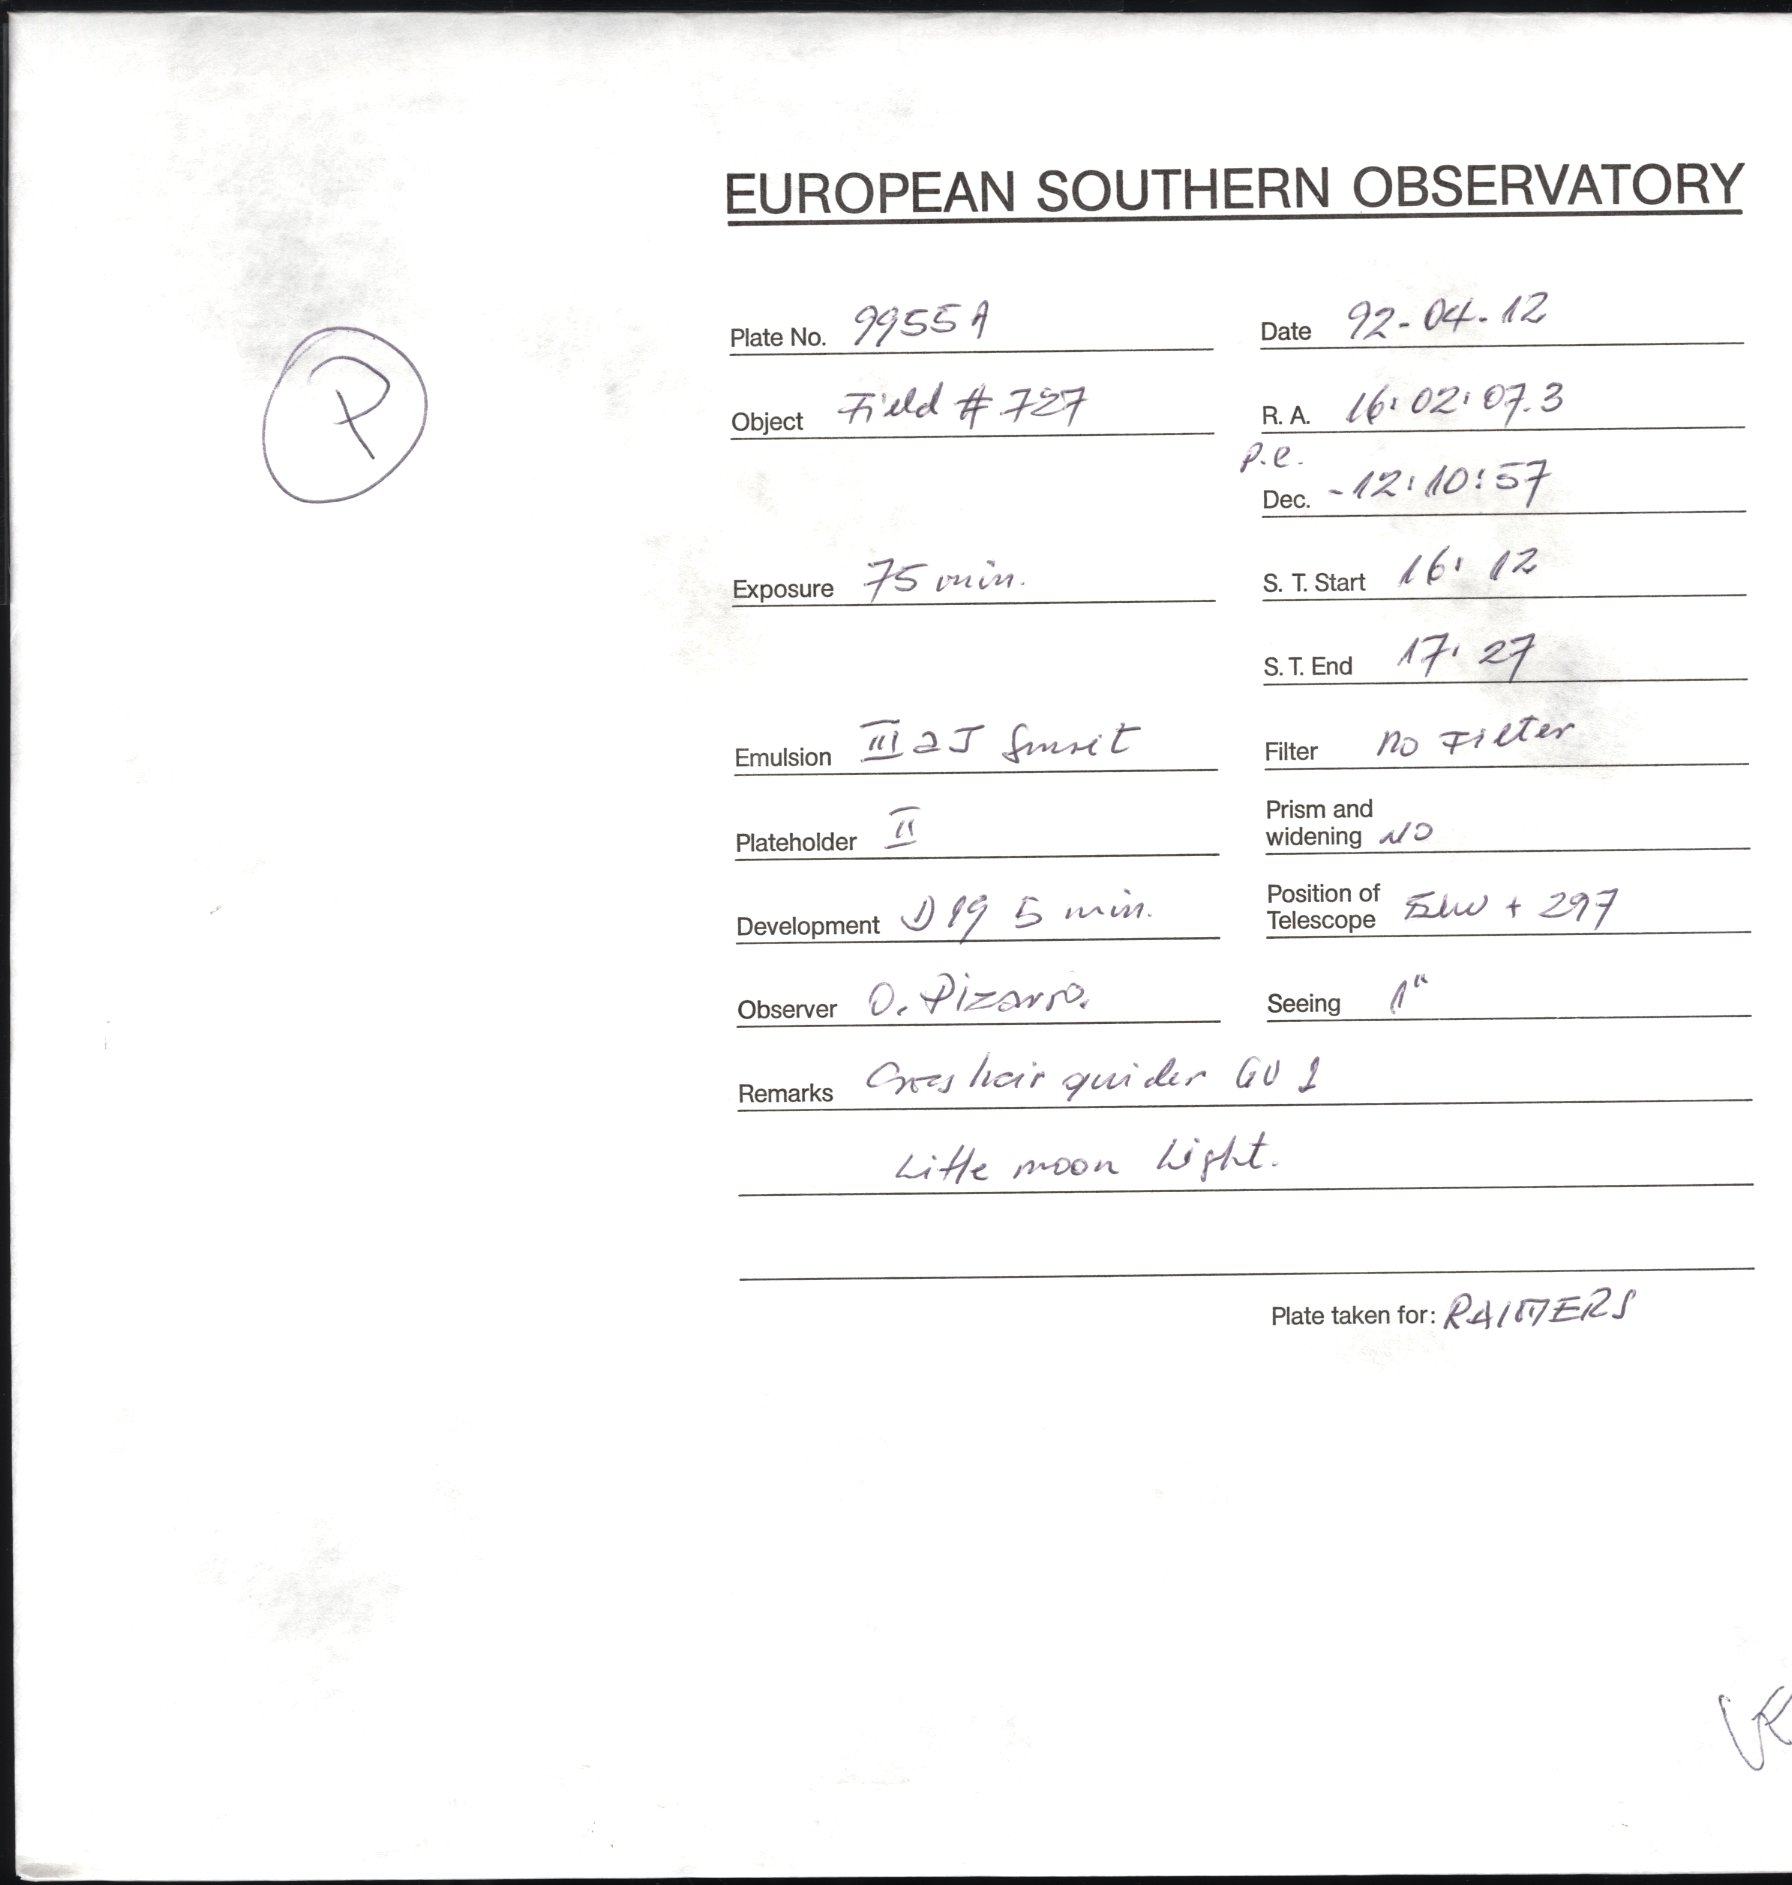 EUROPEAN SOUTHERN OBSERVATORY
Plate No. 9955A Date 92-04-12
P
Object Field # 727 R. A. 16:02:07.3
p.e.
Dec. -12:10:57
Exposure 75 min. S. T. Start 16: 12
S. T. End 17: 27
Emulsion IIIaJ Filter no Filter
Plateholder II Prism and
widening NO
Development D19 5 min. Position of
Telescope + 297
Observer O. Pizarro. Seeing 1"
Remarks Cross hair guider GU 1
Little moon Light.
Plate taken for: RAIMERS